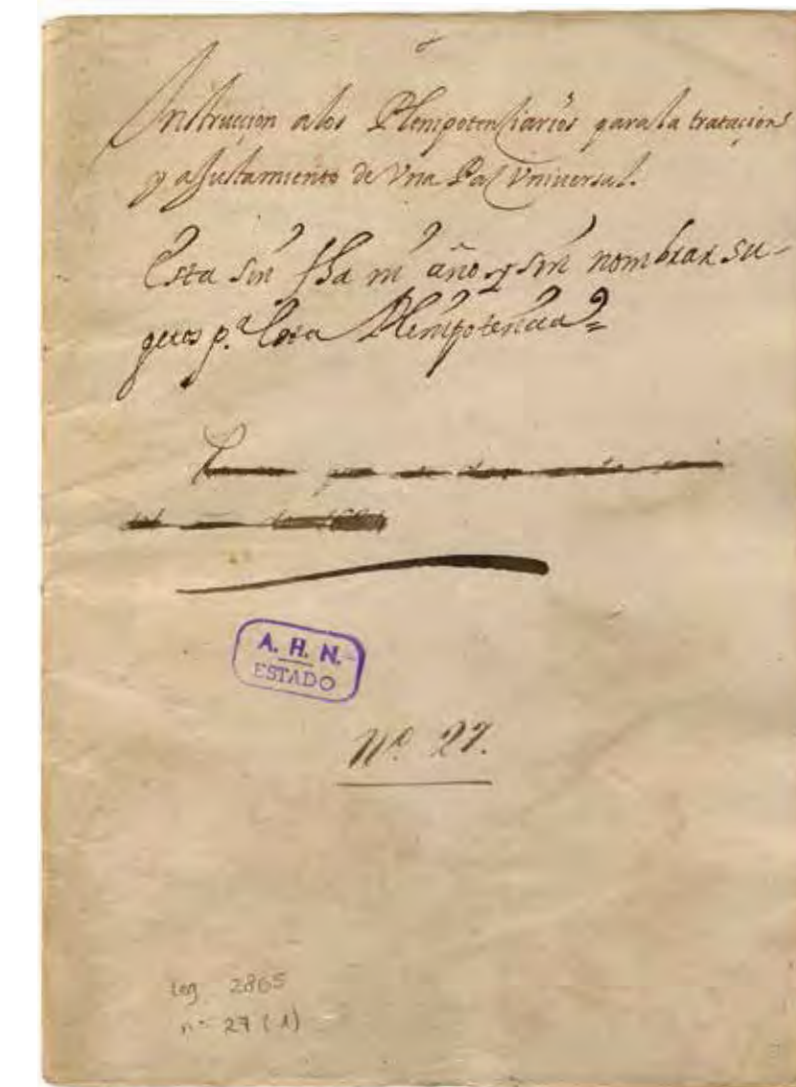 Instruccion a los Plenipotenciarios para la tratacion
y ajustamiento de Vna Paz Vniuersal.
Esta sin fha ni año y sin nombrar su-
getos p.ª Plenipotencia
A. H. N.
ESTADO
Nº. 27.
Leg 2865
nº 27 (1)